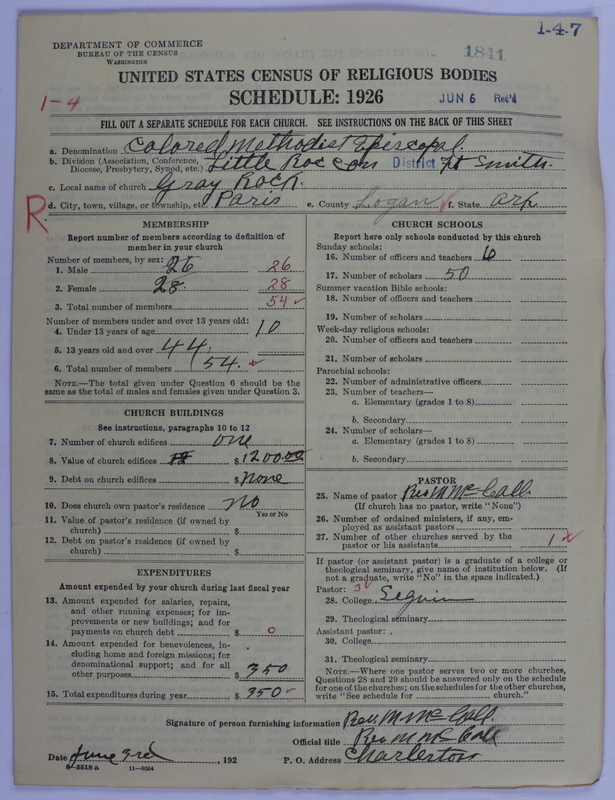 1-4-7
DEPARTMENT OF COMMERCE
BUREAU OF THE CENSUS
WASHINGTON
1841
UNITED STATES CENSUS OF RELIGIOUS BODIES
1-4
SCHEDULE: 1926
JUN 6 Rec'd
FILL OUT A SEPARATE SCHEDULE FOR EACH CHURCH. SEE INSTRUCTIONS ON THE BACK OF THIS SHEET
a. Denomination Colored Methodist Episcopal
b. Division (Association, Conference, Diocese, Presbytery, Synod, etc.) Little Roc Con District Ft Smith.
c. Local name of church Gray Rock.
d. City, town, village, or township, etc. Paris e. County Logan f. State Ark
R
MEMBERSHIP
Report number of members according to definition of member in your church
Number of members, by sex:
1. Male 26 26
2. Female 28. 28
3. Total number of members 54
Number of members under and over 13 years old:
4. Under 13 years of age 10
5. 13 years old and over 44.
6. Total number of members 54.
NOTE.—The total given under Question 6 should be the same as the total of males and females given under Question 3.
CHURCH BUILDINGS
See instructions, paragraphs 10 to 12
7. Number of church edifices one
8. Value of church edifices $1200.00
9. Debt on church edifices $ None
10. Does church own pastor's residence no
Yes or No
11. Value of pastor's residence (if owned by church) $
12. Debt on pastor's residence (if owned by church) $
EXPENDITURES
Amount expended by your church during last fiscal year
13. Amount expended for salaries, repairs, and other running expenses; for improvements or new buildings; and for payments on church debt $ 0
14. Amount expended for benevolences, including home and foreign missions; for denominational support; and for all other purposes $ 350
15. Total expenditures during year $ 350
CHURCH SCHOOLS
Report here only schools conducted by this church
Sunday schools:
16. Number of officers and teachers 6
17. Number of scholars 50
Summer vacation Bible schools:
18. Number of officers and teachers
19. Number of scholars
Week-day religious schools:
20. Number of officers and teachers
21. Number of scholars
Parochial schools:
22. Number of administrative officers
23. Number of teachers—
a. Elementary (grades 1 to 8)
b. Secondary
24. Number of scholars—
a. Elementary (grades 1 to 8)
b. Secondary
PASTOR
25. Name of pastor Rev. M McCall.
(If church has no pastor, write "None")
26. Number of ordained ministers, if any, employed as assistant pastors
27. Number of other churches served by the pastor or his assistants 1
If pastor (or assistant pastor) is a graduate of a college or theological seminary, give name of institution below. (If not a graduate, write "No" in the space indicated.)
Pastor: 3
28. College Seguin
29. Theological seminary
Assistant pastor:
30. College
31. Theological seminary
NOTE.—Where one pastor serves two or more churches, Questions 28 and 29 should be answered only on the schedule for one of the churches; on the schedules for the other churches, write "See schedule for ____ church."
Signature of person furnishing information Rev. M McCall.
Official title Rev M McCall
Date June 3rd, 192 P. O. Address Charleston
8-5518 a 11-9034